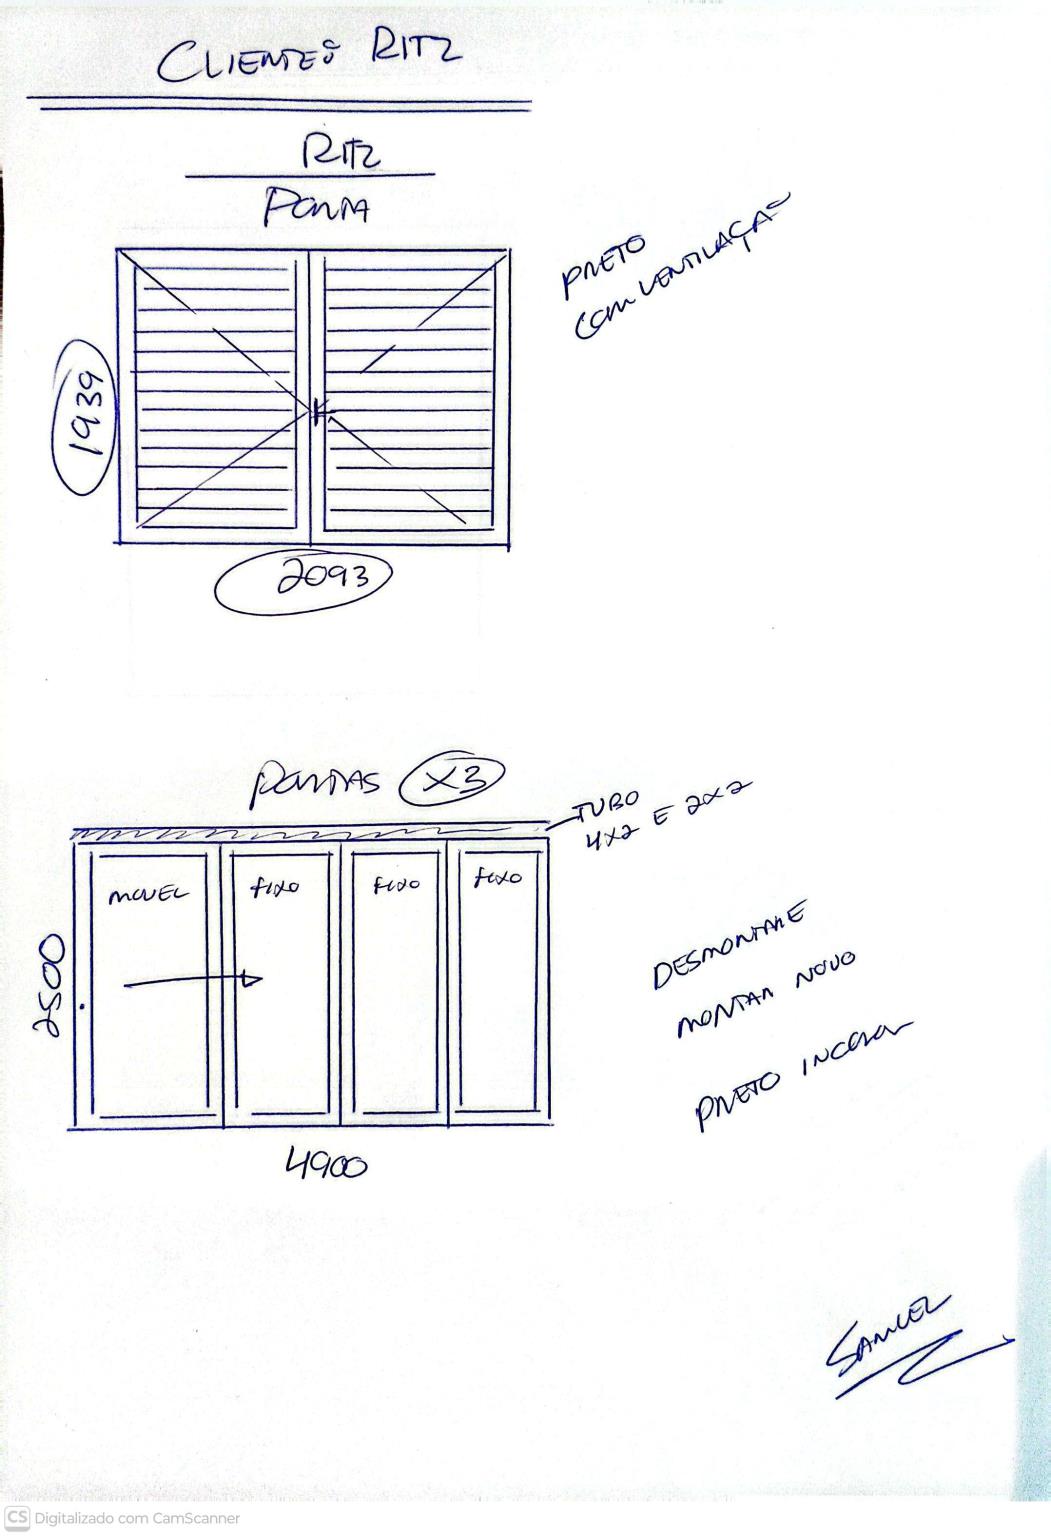 CLIENTE: RITZ
RITZ
PORTA
PRETO
COM VENTILAÇÃO
1939
2093
PORTAS X3
TUBO
4x2 E 2x2
MOVEL FIXO FIXO FIXO
2500
DESMONTAR E
MONTAR NOVO
PRETO INCOLOR
4900
SAMUEL
CS Digitalizado com CamScanner